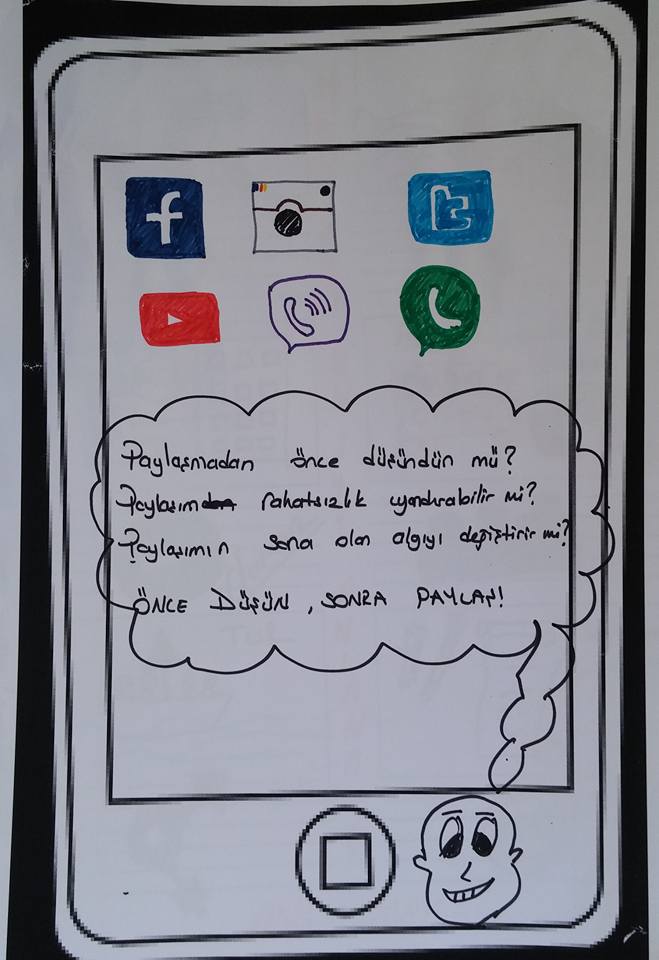 f t
Paylaşmadan önce düşündün mü?
Paylaşım rahatsızlık uyandırabilir mi?
Paylaşımın sana olan algıyı değiştirir mi?
ÖNCE DÜŞÜN, SONRA PAYLAŞ!